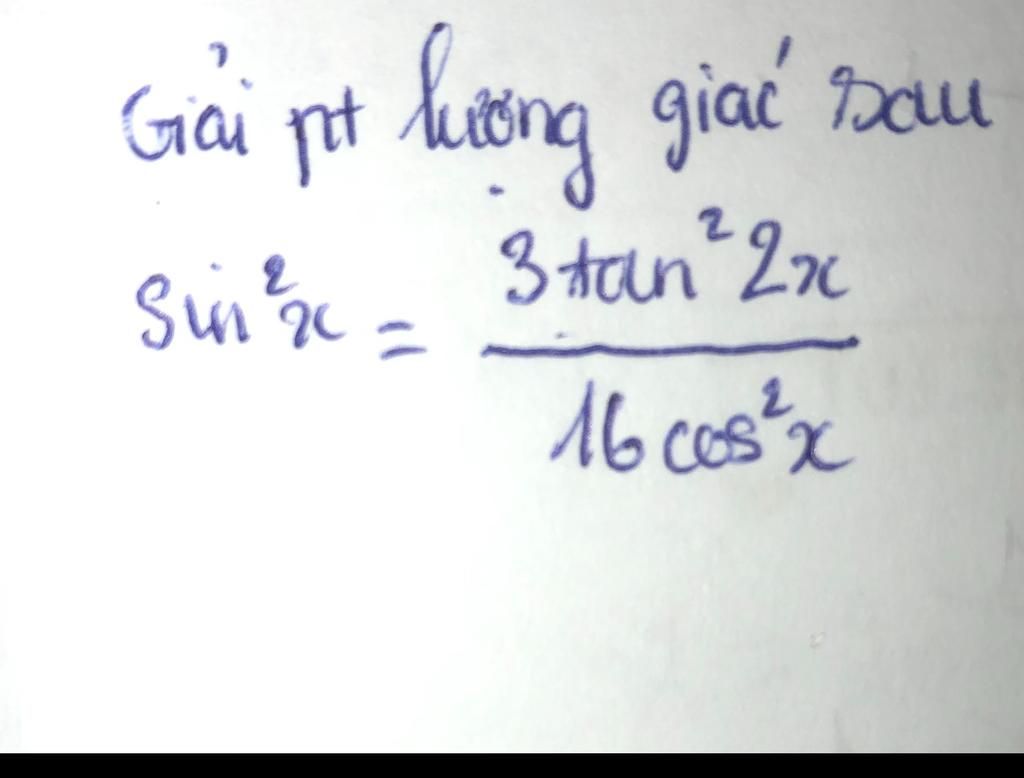 Giải pt lượng giác sau
sin²x = 3tan²2x / 16cos²x